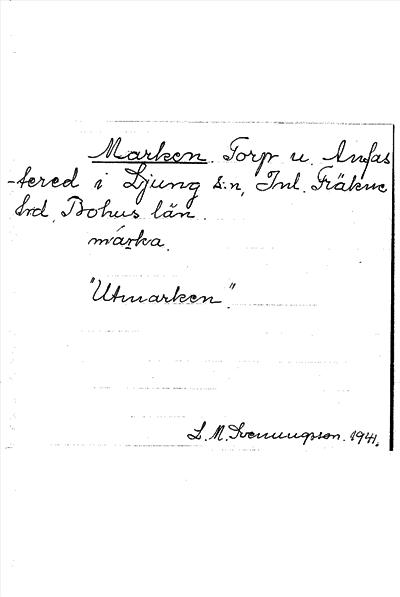 Marken. Torp u. Anfas
-tered i Ljung s:n, Inl. Fräkne
hrd, Bohus län.
márka.
"Utmarken".
L. M. Svenungsson. 1941.